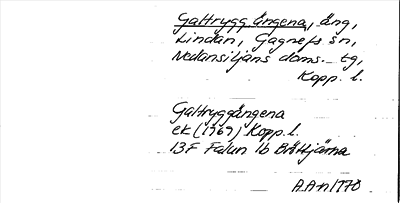 Galtryggångena, äng,
Lindan, Gagnefs sn,
Nedansiljans doms. tg,
Kopp. l.
Galtryggångena
ek (1969) Kopp. l.
13F Falun 1b Bråttjärna
A.A-n 1970